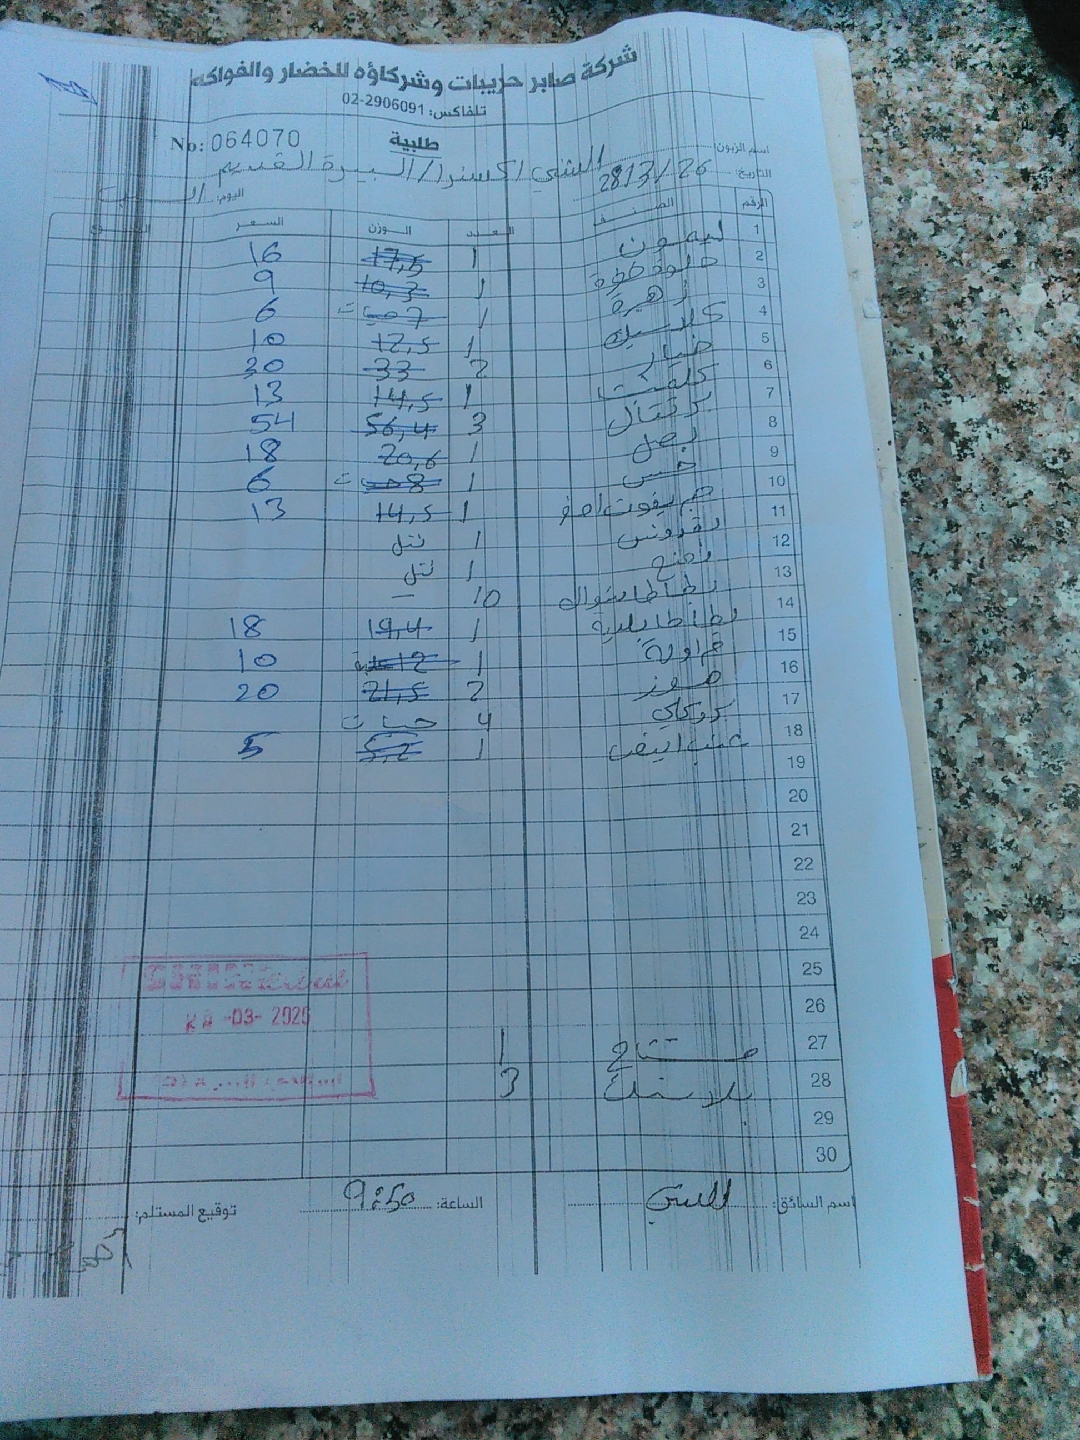 شركة صابر حريبات وشركاؤه للخضار والفواكه
تلفاكس: 02-2906091
طلبية
No: 064070
اسم الزبون: الشني اكسترا / البيرة القديم
التاريخ: 28/3/26 اليوم: السبت
الرقم الصنف العدد الوزن السعر
1 ليمون 1 17,5 16
2 1 10,3 9
3 زهرة 1 7 حبات 6
4 كلاسيك 1 12,5 10
5 خيار 2 33 30
6 1 14,5 13
7 برتقال 3 56,4 54
8 بصل 1 20,6 18
9 خس 1 8 حبات 6
10 جريفوت احمر 1 14,5 13
11 بقدونس 1 نتل
12 نعنع 1 نتل
13 بطاطا شوال 10 –
14 بطاطا بلدية 1 19,4 18
15 فراولة 1 12 علبة 10
16 موز 2 21,5 20
17 بروكلي 4 حبات
18 عنب ابيض 1 5,2 5
19
20
21
22
23
24
25
26
27 مشتاح 1
28 بلاستيك 3
29
30
-03- 2026
اسم السائق: الساعة: 9:50 توقيع المستلم: